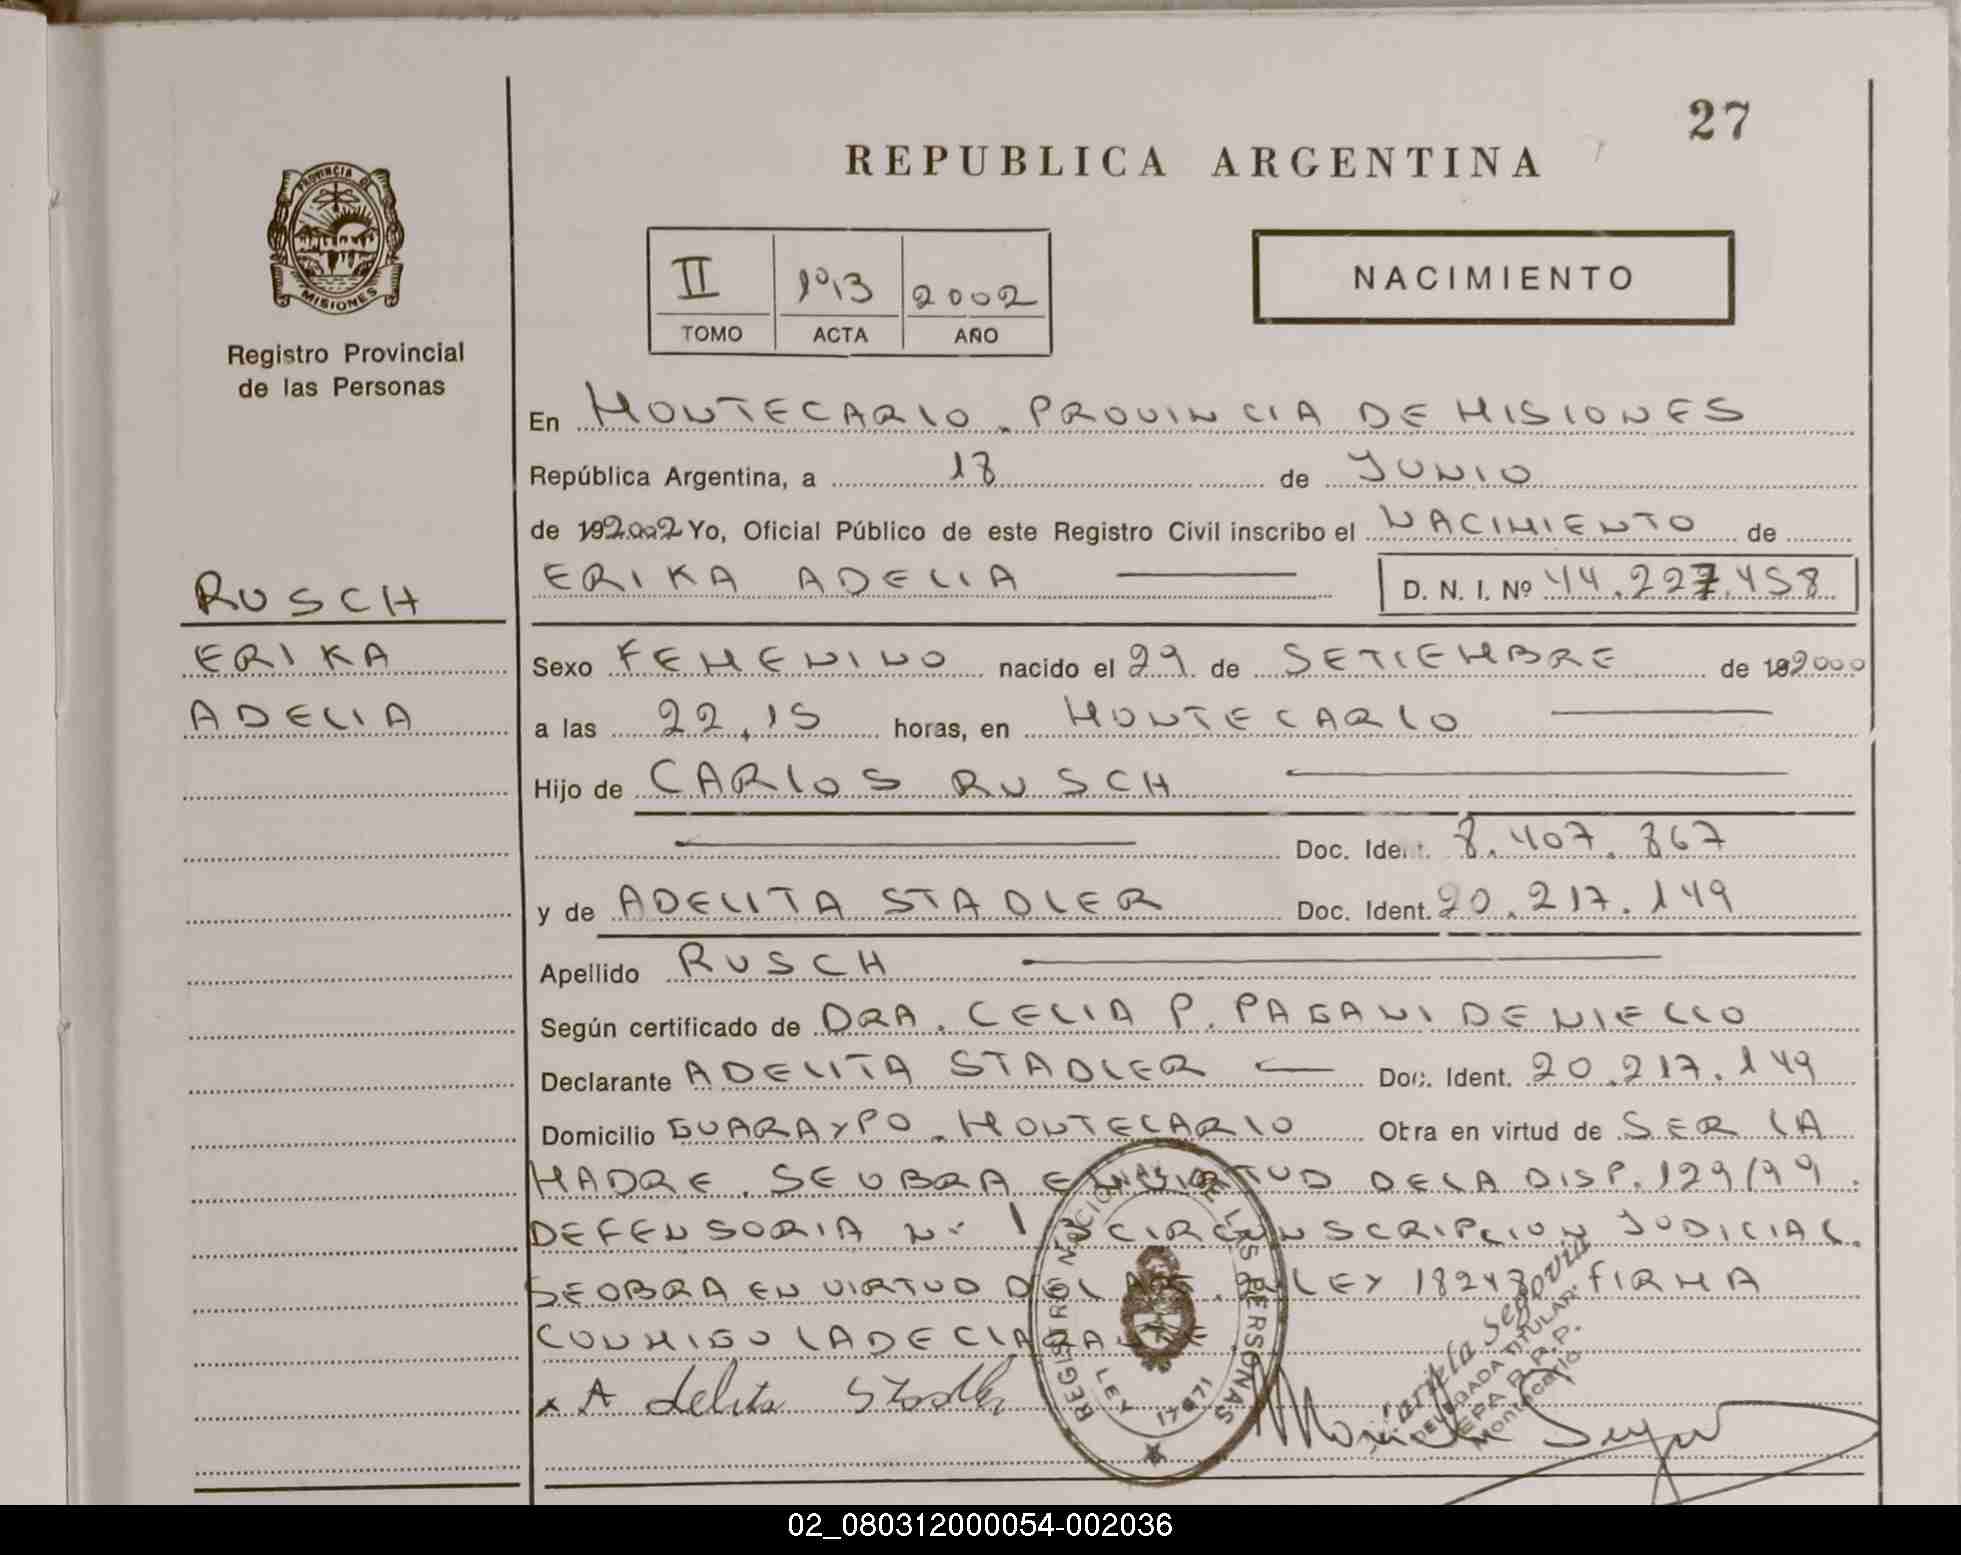 27
REPUBLICA ARGENTINA
PROVINCIA DE
MISIONES
Registro Provincial
de las Personas
II
2002
TOMO ACTA AÑO
NACIMIENTO
En MONTECARLO. PROVINCIA DE MISIONES
República Argentina, a 18 de JUNIO
de 192002 Yo, Oficial Público de este Registro Civil inscribo el NACIMIENTO de
ERIKA ADELIA D. N. I. Nº 44.227.458
RUSCH
ERIKA
ADELIA
Sexo FEMENINO nacido el 29 de SETIEMBRE de 192000
a las 22,15 horas, en MONTECARLO
Hijo de CARLOS RUSCH
Doc. Ident. 8.407.867
y de ADELITA STADLER Doc. Ident. 20.217.149
Apellido RUSCH
Según certificado de DRA. CELIA P. PAGANI DE NIELLO
Declarante ADELITA STADLER Doc. Ident. 20.217.149
Domicilio GUARAYPO. MONTECARLO Obra en virtud de SER LA
MADRE. SE OBRA EN VIRTUD DE LA DISP. 129/99.
DEFENSORIA Nº 1 3 CIRCUNSCRIPCION JUDICIAL.
SE OBRA EN VIRTUD DEL LEY 18248 FIRMA
CONMIGO LA DECLARANTE.
x Adelita Stadler
REGISTRO NACIONAL DE LAS PERSONAS
LEY 17671
Mariela Segovia
DELEGADA TITULAR
R.P.P.
Montecarlo
Mariela Segovia
02_080312000054-002036